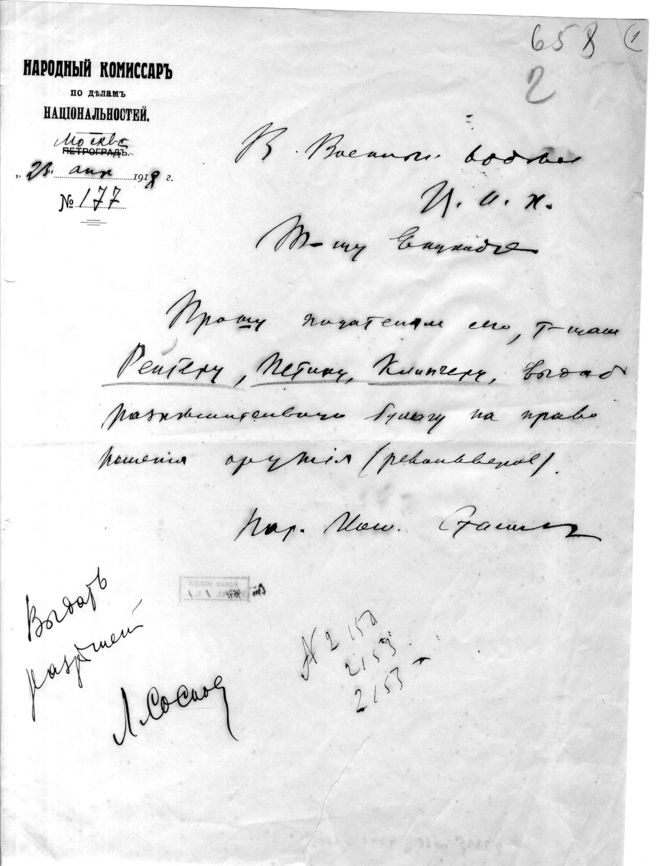 658 1
2
НАРОДНЫЙ КОМИССАРЪ
ПО ДѢЛАМЪ
НАЦІОНАЛЬНОСТЕЙ.
Москва
ПЕТРОГРАДЪ.
„23" апр 1918 г.
№ 177
В Военный
Т-щу Енукидзе
Прошу подателям сего, т-щам
Рентелу, Петину, Клингеру, выдать
разрешительную бумагу на право
ношения оружия (револьверов).
Нар. Ком. Сталин
Выдать
разрешен
Л. Сосновс
N 2150
2153
2153